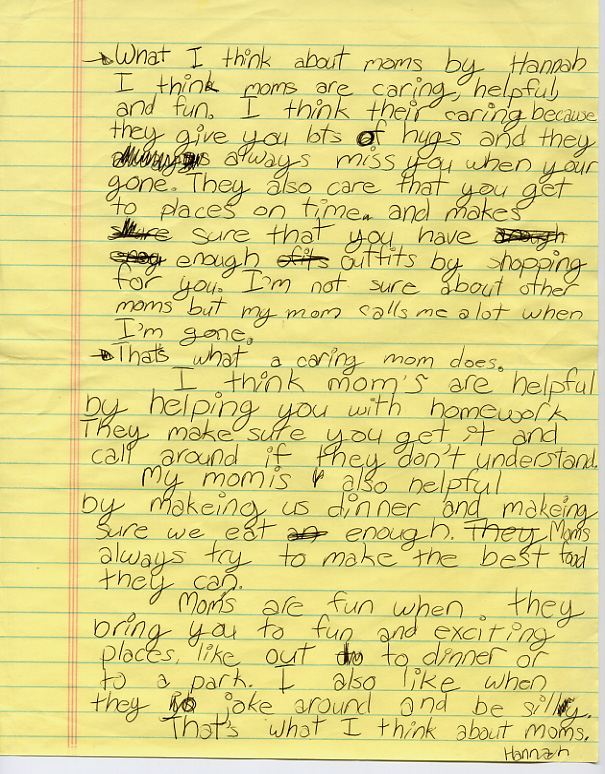 What I think about moms by Hannah
I think moms are caring, helpful
and fun. I think their caring because
they give you lots of hugs and they
always miss you when your
gone. They also care that you get
to places on time. and makes
sure sure that you have enough
enough outfits by shopping
for you. I'm not sure about other
moms but my mom calls me alot when
I'm gone.
That's what a caring mom does.
I think mom's are helpful
by helping you with homework
They make sure you get it and
call around if they don't understand.
My mom is also helpful
by makeing us dinner and makeing
sure we eat enough. They Moms
always try to make the best food
they can.
Moms are fun when they
bring you to fun and exciting
places, like out to dinner or
to a park. I also like when
they joke around and be silly.
That's what I think about moms.
Hannah